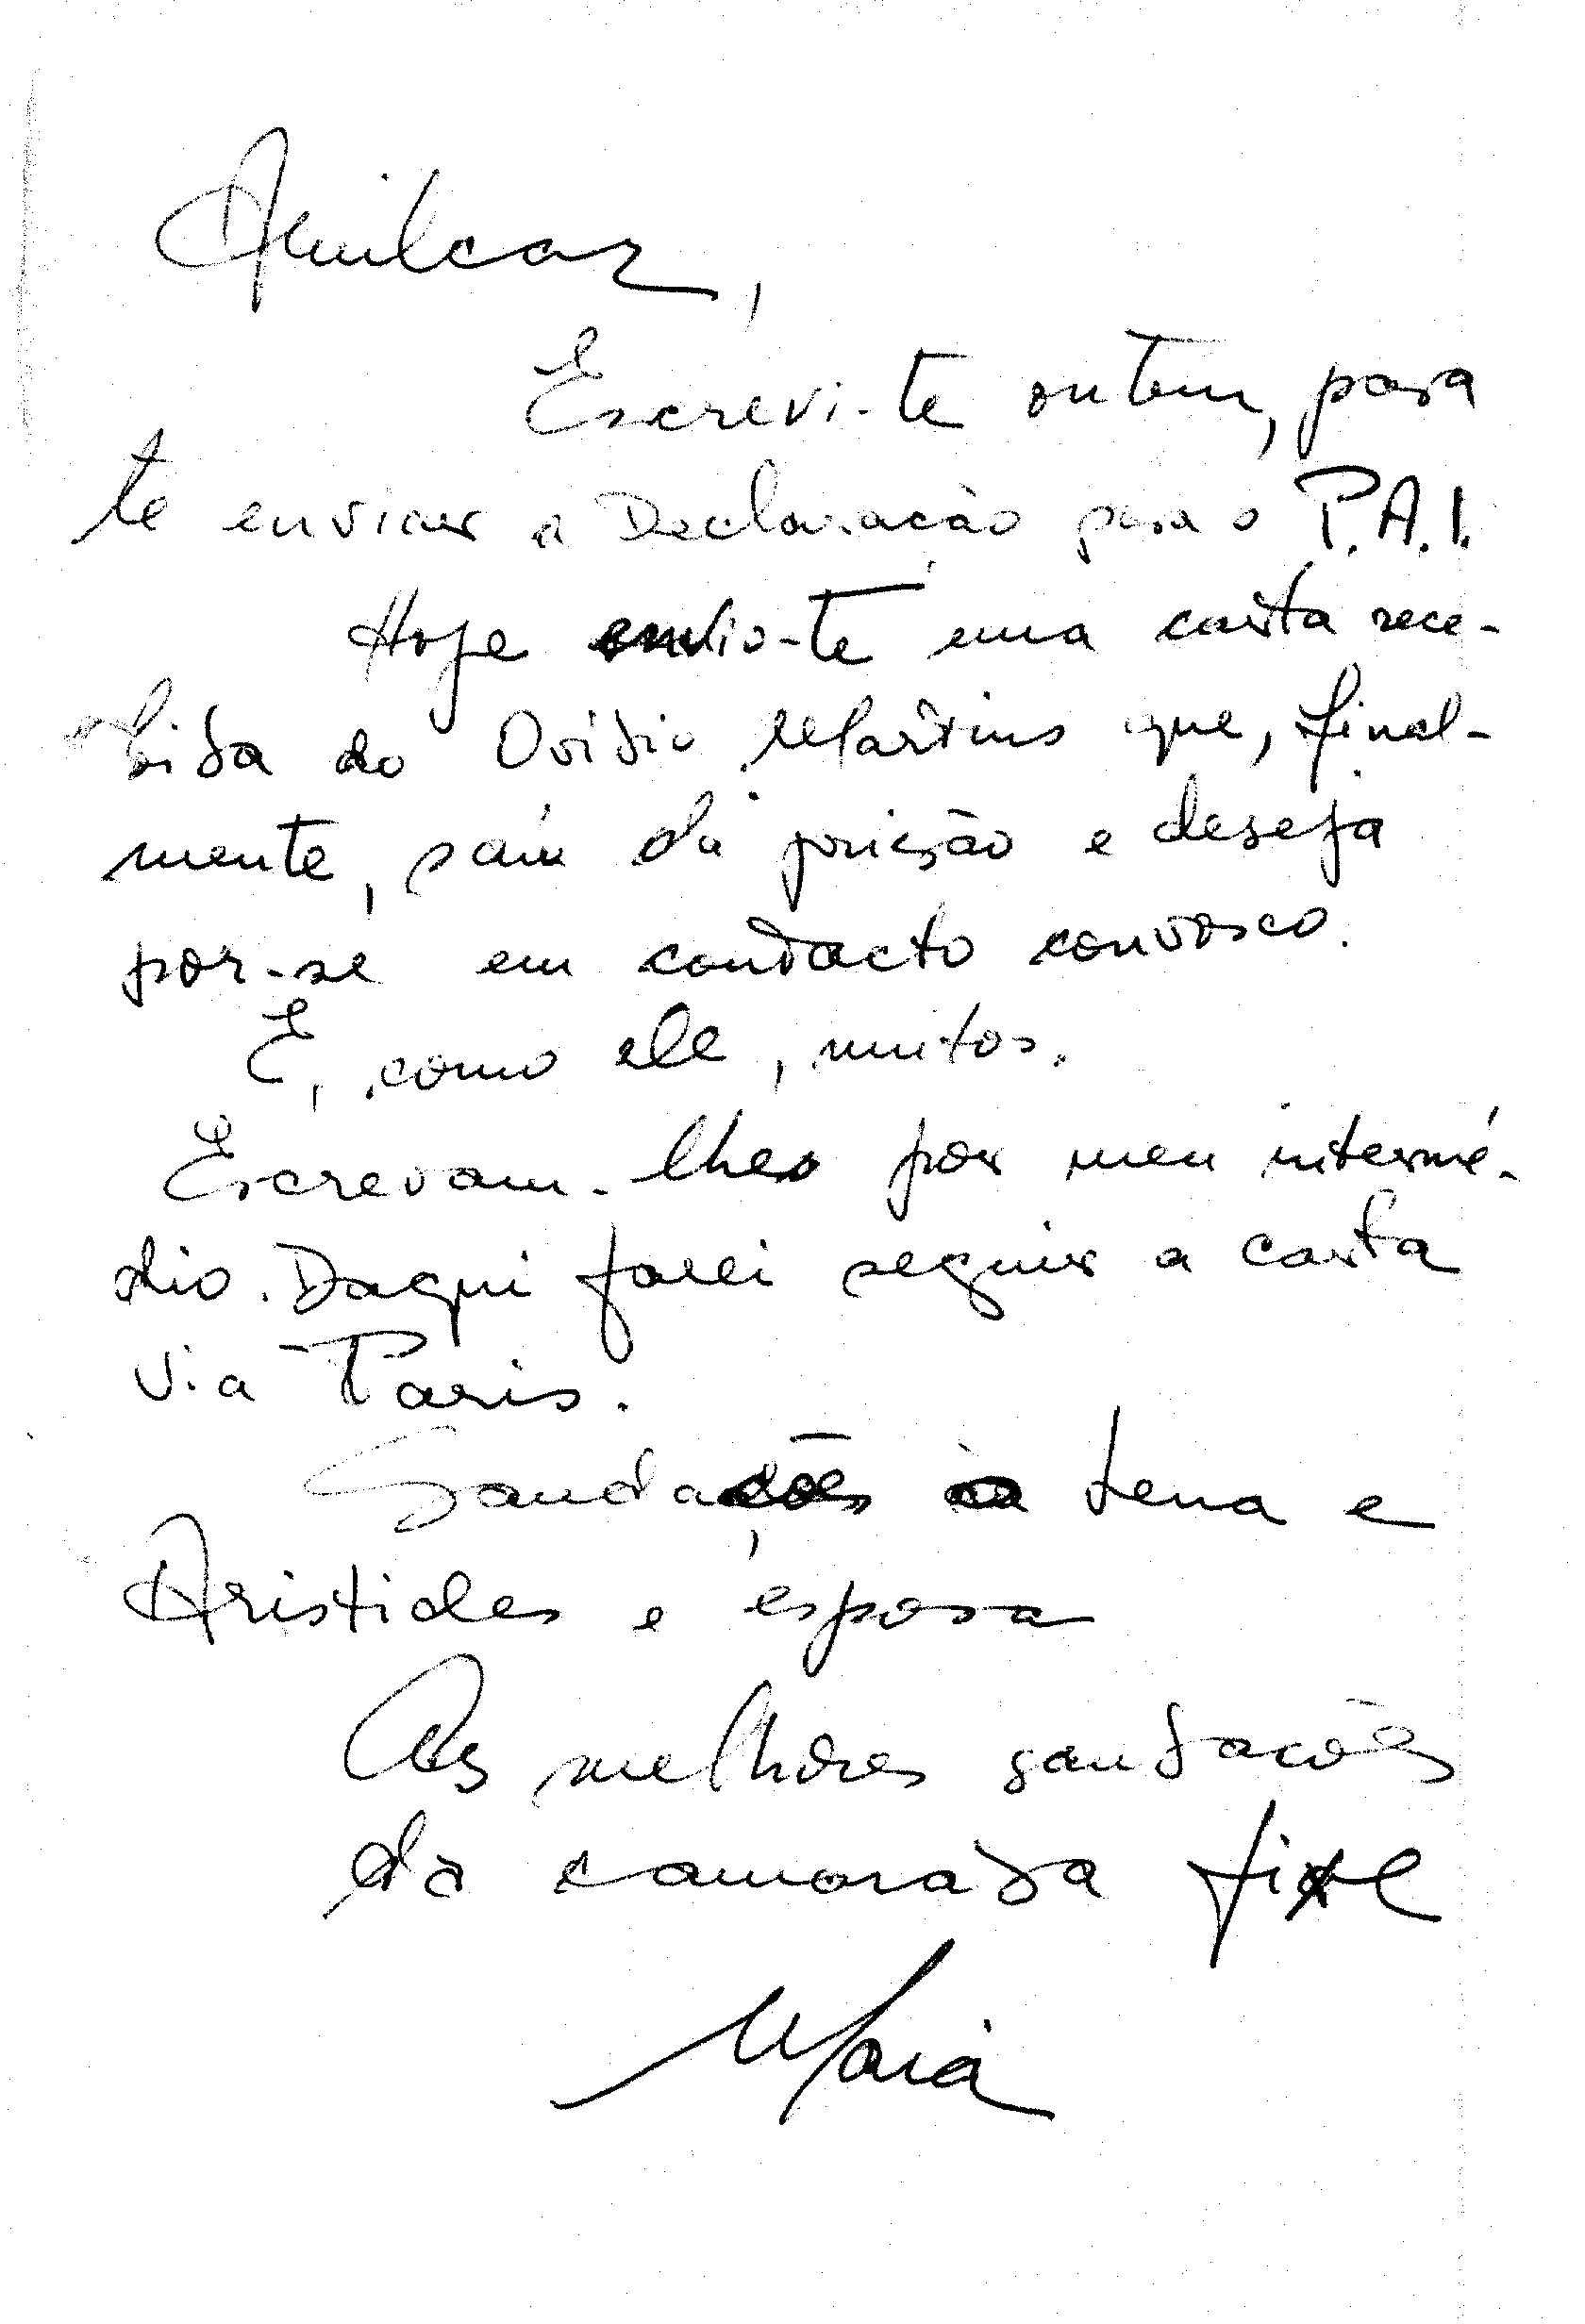 Amilcar,
Escrevi-te ontem, para
te enviar a Declaração para o P.A.I.
Hoje envio-te uma carta rece-
bida do Ovídio Martins que, final-
mente, saíu da prisão e deseja
pôr-se em contacto convosco.
E, como ele, muitos.
Escrevam-lhes por meu intermé-
dio. Daqui farei seguir a carta
via Paris.
Saudações à Lena e
Aristides e esposa
As melhores saudações
da camarada fixe